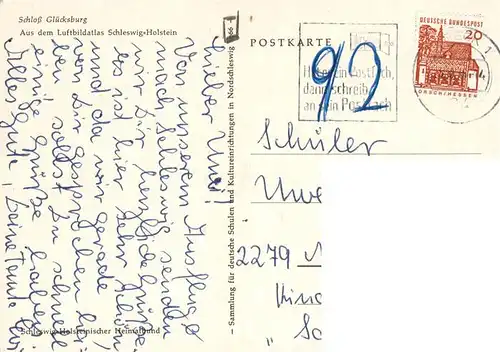 Schloß Glücksburg
Aus dem Luftbildatlas Schleswig-Holstein
Lieber Uwe!
Von unserem Ausflug
nach Schleswig senden
wir Dir herzliche Grüße
Es ist hier sehr schön
und da wir gerade
von Dir gesprochen
sollst Du schnell
einige Grüße haben
Alles gute, Deine Tante
Schleswig-Holsteinischer Heimatbund
– Sammlung für deutsche Schulen und Kultureinrichtungen in Nordschleswig
66
POSTKARTE
ein Postfach,
dann schreib
an sein Postfach
92
DEUTSCHE BUNDESPOST
20
LORSCH/HESSEN
Schüler
Uwe
2279